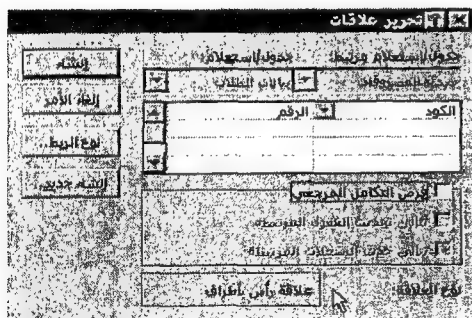 تحرير علاقات
جدول/استعلام مرتبط: جدول/استعلام:
بيانات الطلاب
الكود الرقم
فرض التكامل المرجعي
تتالي تحديث الحقول المرتبطة
تتالي حذف السجلات المرتبطة
نوع العلاقة: علاقة رأس بأطراف
إنشاء
إلغاء الأمر
نوع الربط..
إنشاء جديد..